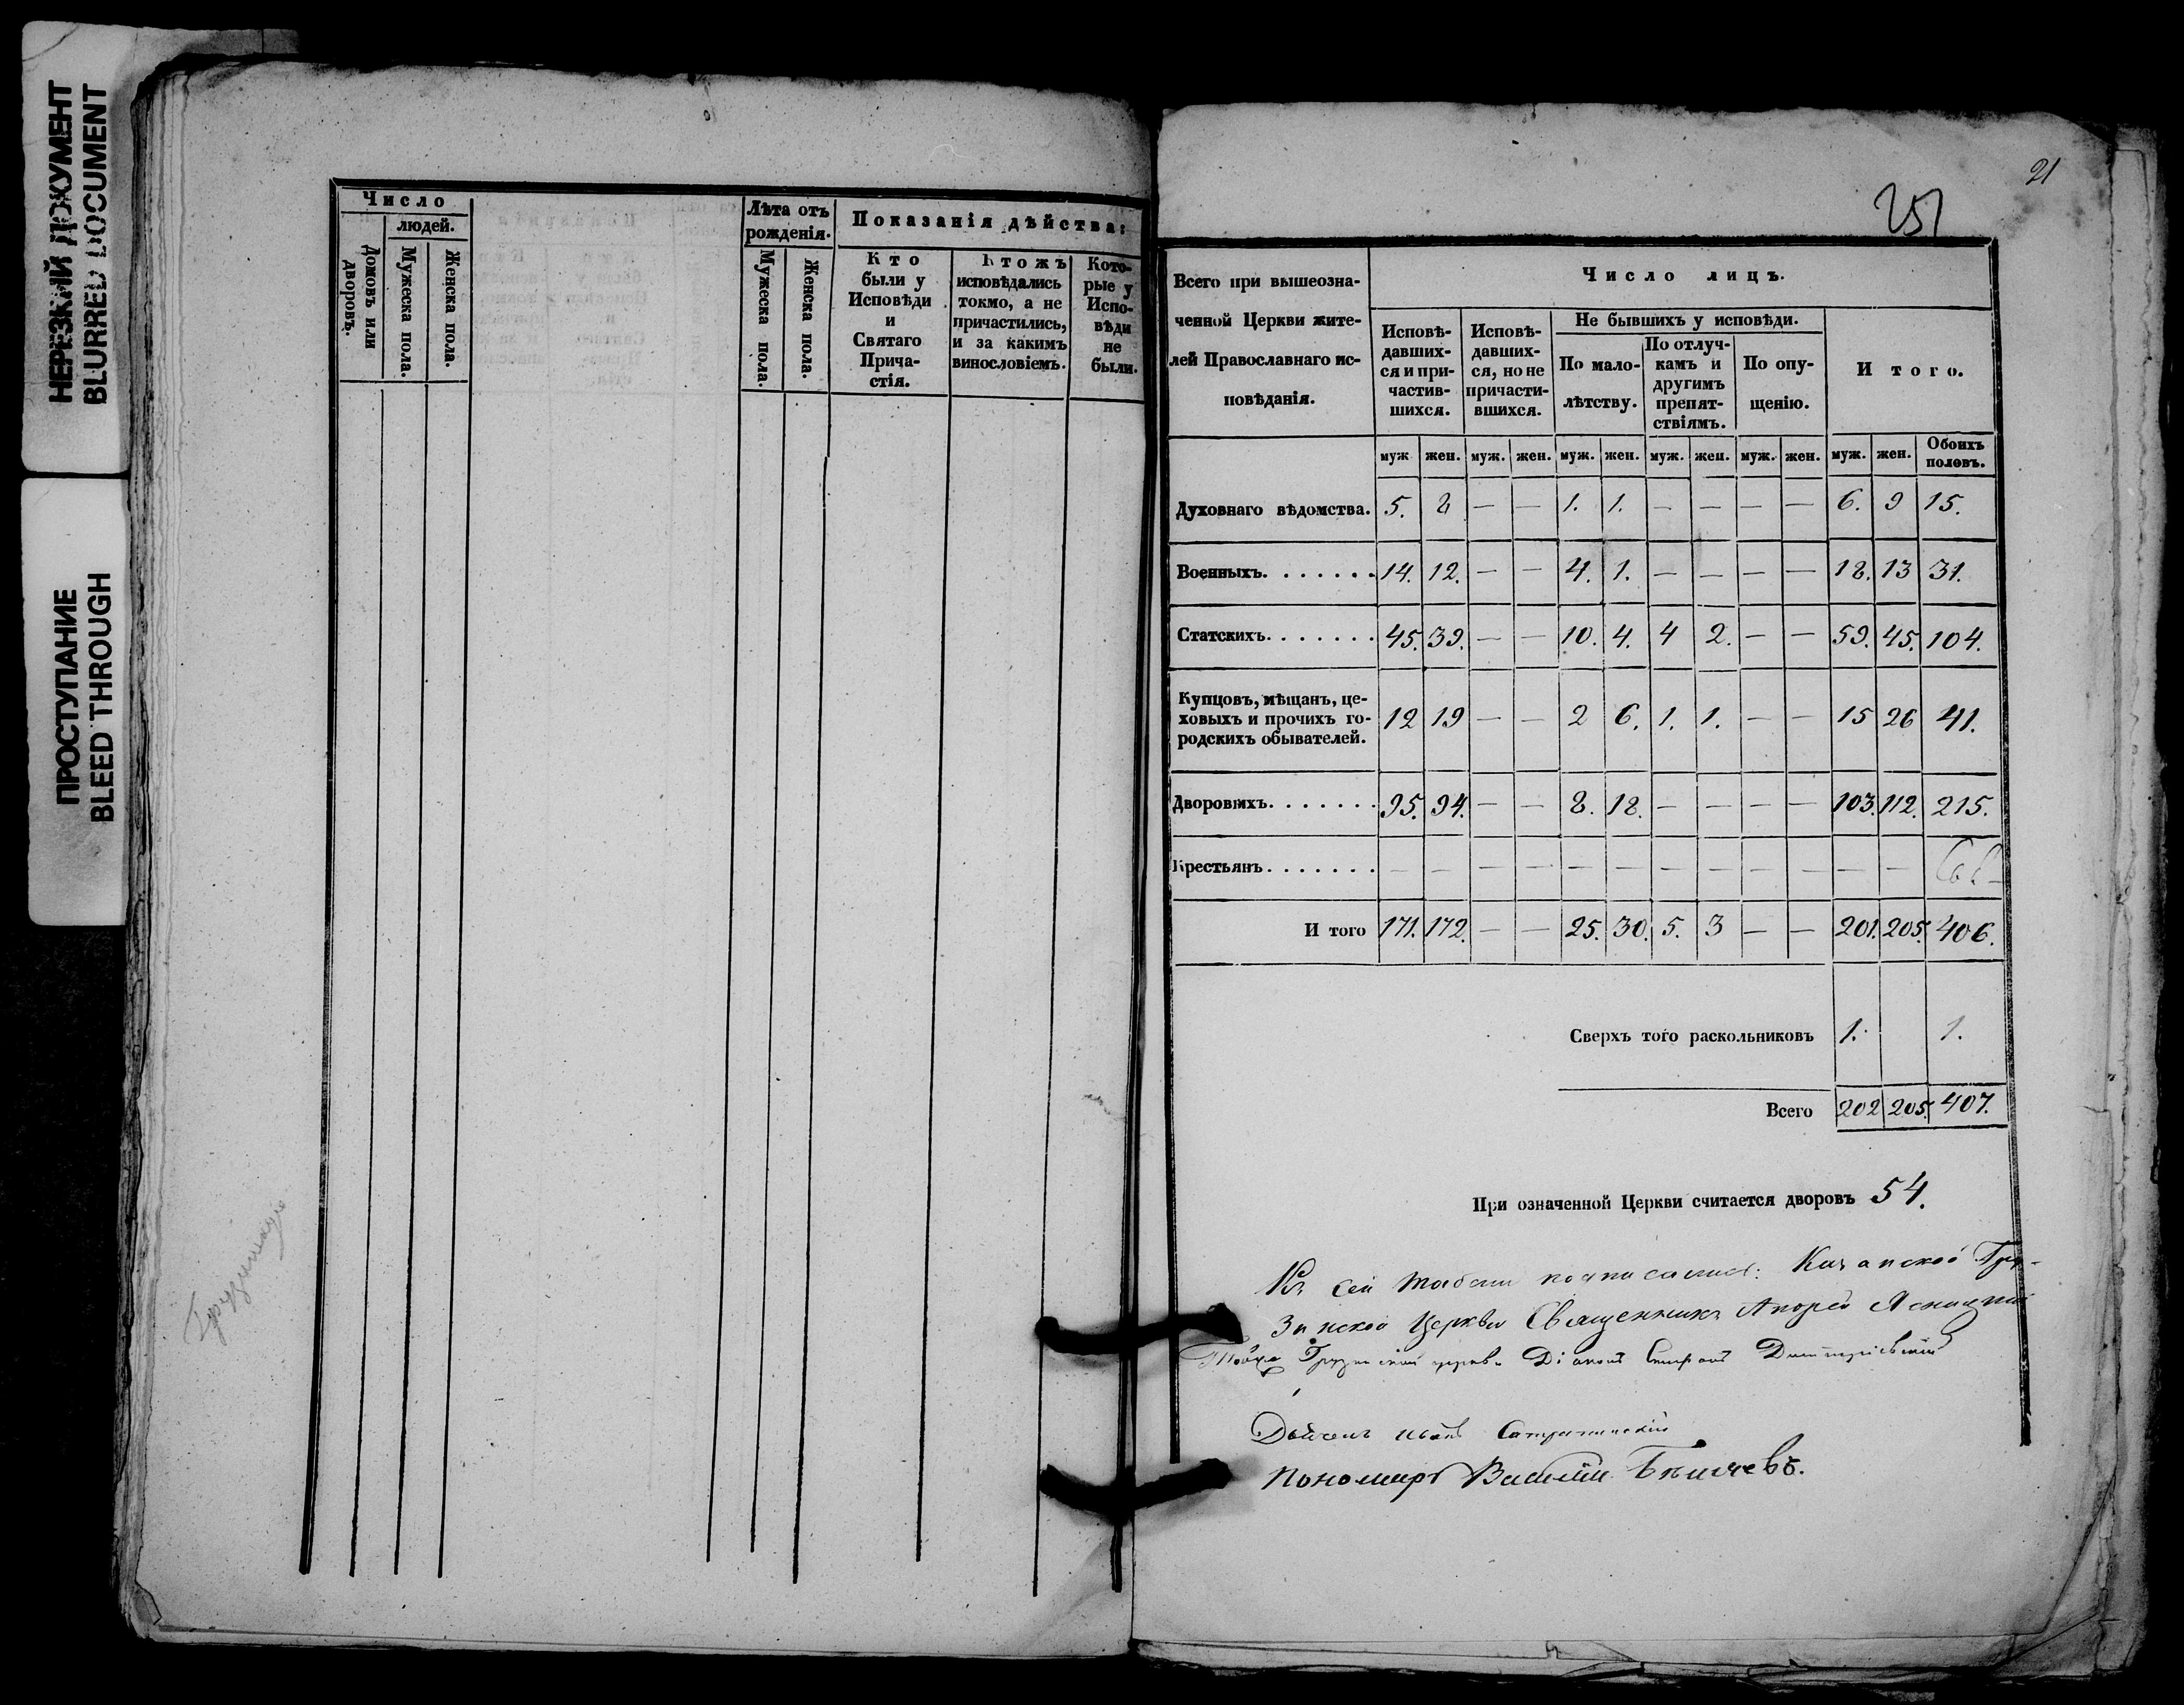 НЕРЕЗКИЙ ДОКУМЕНТ
BLURRED DOCUMENT
ПРОСТУПАНИЕ
BLEED THROUGH
Число
людей.
Домовъ или дворовъ.
Мужеска пола.
Женска пола.
Лѣта отъ рожденія.
Мужеска пола.
Женска пола.
Показанія дѣйства:
Кто были у Исповѣди и Святаго Прича-стія.
Ктожъ исповѣдались токмо, а не причастились, и за какимъ винословіемъ.
Кото-рые у Испо-вѣди не были.
21
251
Всего при вышеозна-
ченной Церкви жите-
лей Православнаго ис-
повѣданія.
Число лицъ.
Исповѣ-давших-ся и при-частив-шихся.
Исповѣ-давших-ся, но не причасти-вшихся.
Не бывшихъ у исповѣди.
По мало-лѣтству.
По отлуч-камъ и другимъ препят-ствіямъ.
По опу-щенію.
И того.
муж жен. муж. жен. муж. жен. муж. жен. муж. жен. муж. жен. Обоихъ половъ.
Духовнаго вѣдомства. 5. 8 — — 1. 1. — — — — 6. 9 15.
Военныхъ. . . . . . . 14. 12. — — 4. 1. — — — — 18. 13 31.
Статскихъ. . . . . . . 45. 39. — — 10. 4. 4 2. — — 59. 45. 104.
Купцовъ, мѣщанъ, це-
ховыхъ и прочихъ го-
родскихъ обывателей. 12 19 — — 2 6. 1. 1. — — 15 26 41.
Дворовыхъ. . . . . . . 95. 94. — — 8. 18. — — — — 103. 112. 215.
Крестьянъ. . . . . . . — — — — — — — — — — — —
И того 171. 172. — — 25. 30. 5. 3 — — 201. 205. 406.
Сверхъ того раскольниковъ 1. 1.
Всего 202 205. 407.
При означенной Церкви считается дворовъ 54.
Къ сей табели подписались: Казанской Гру-
зинской Церкви Священникъ Андрей Ясницкій
Тойже Грузинской церкви Діаконъ
Дьячекъ Иванъ
Пономарь Василій